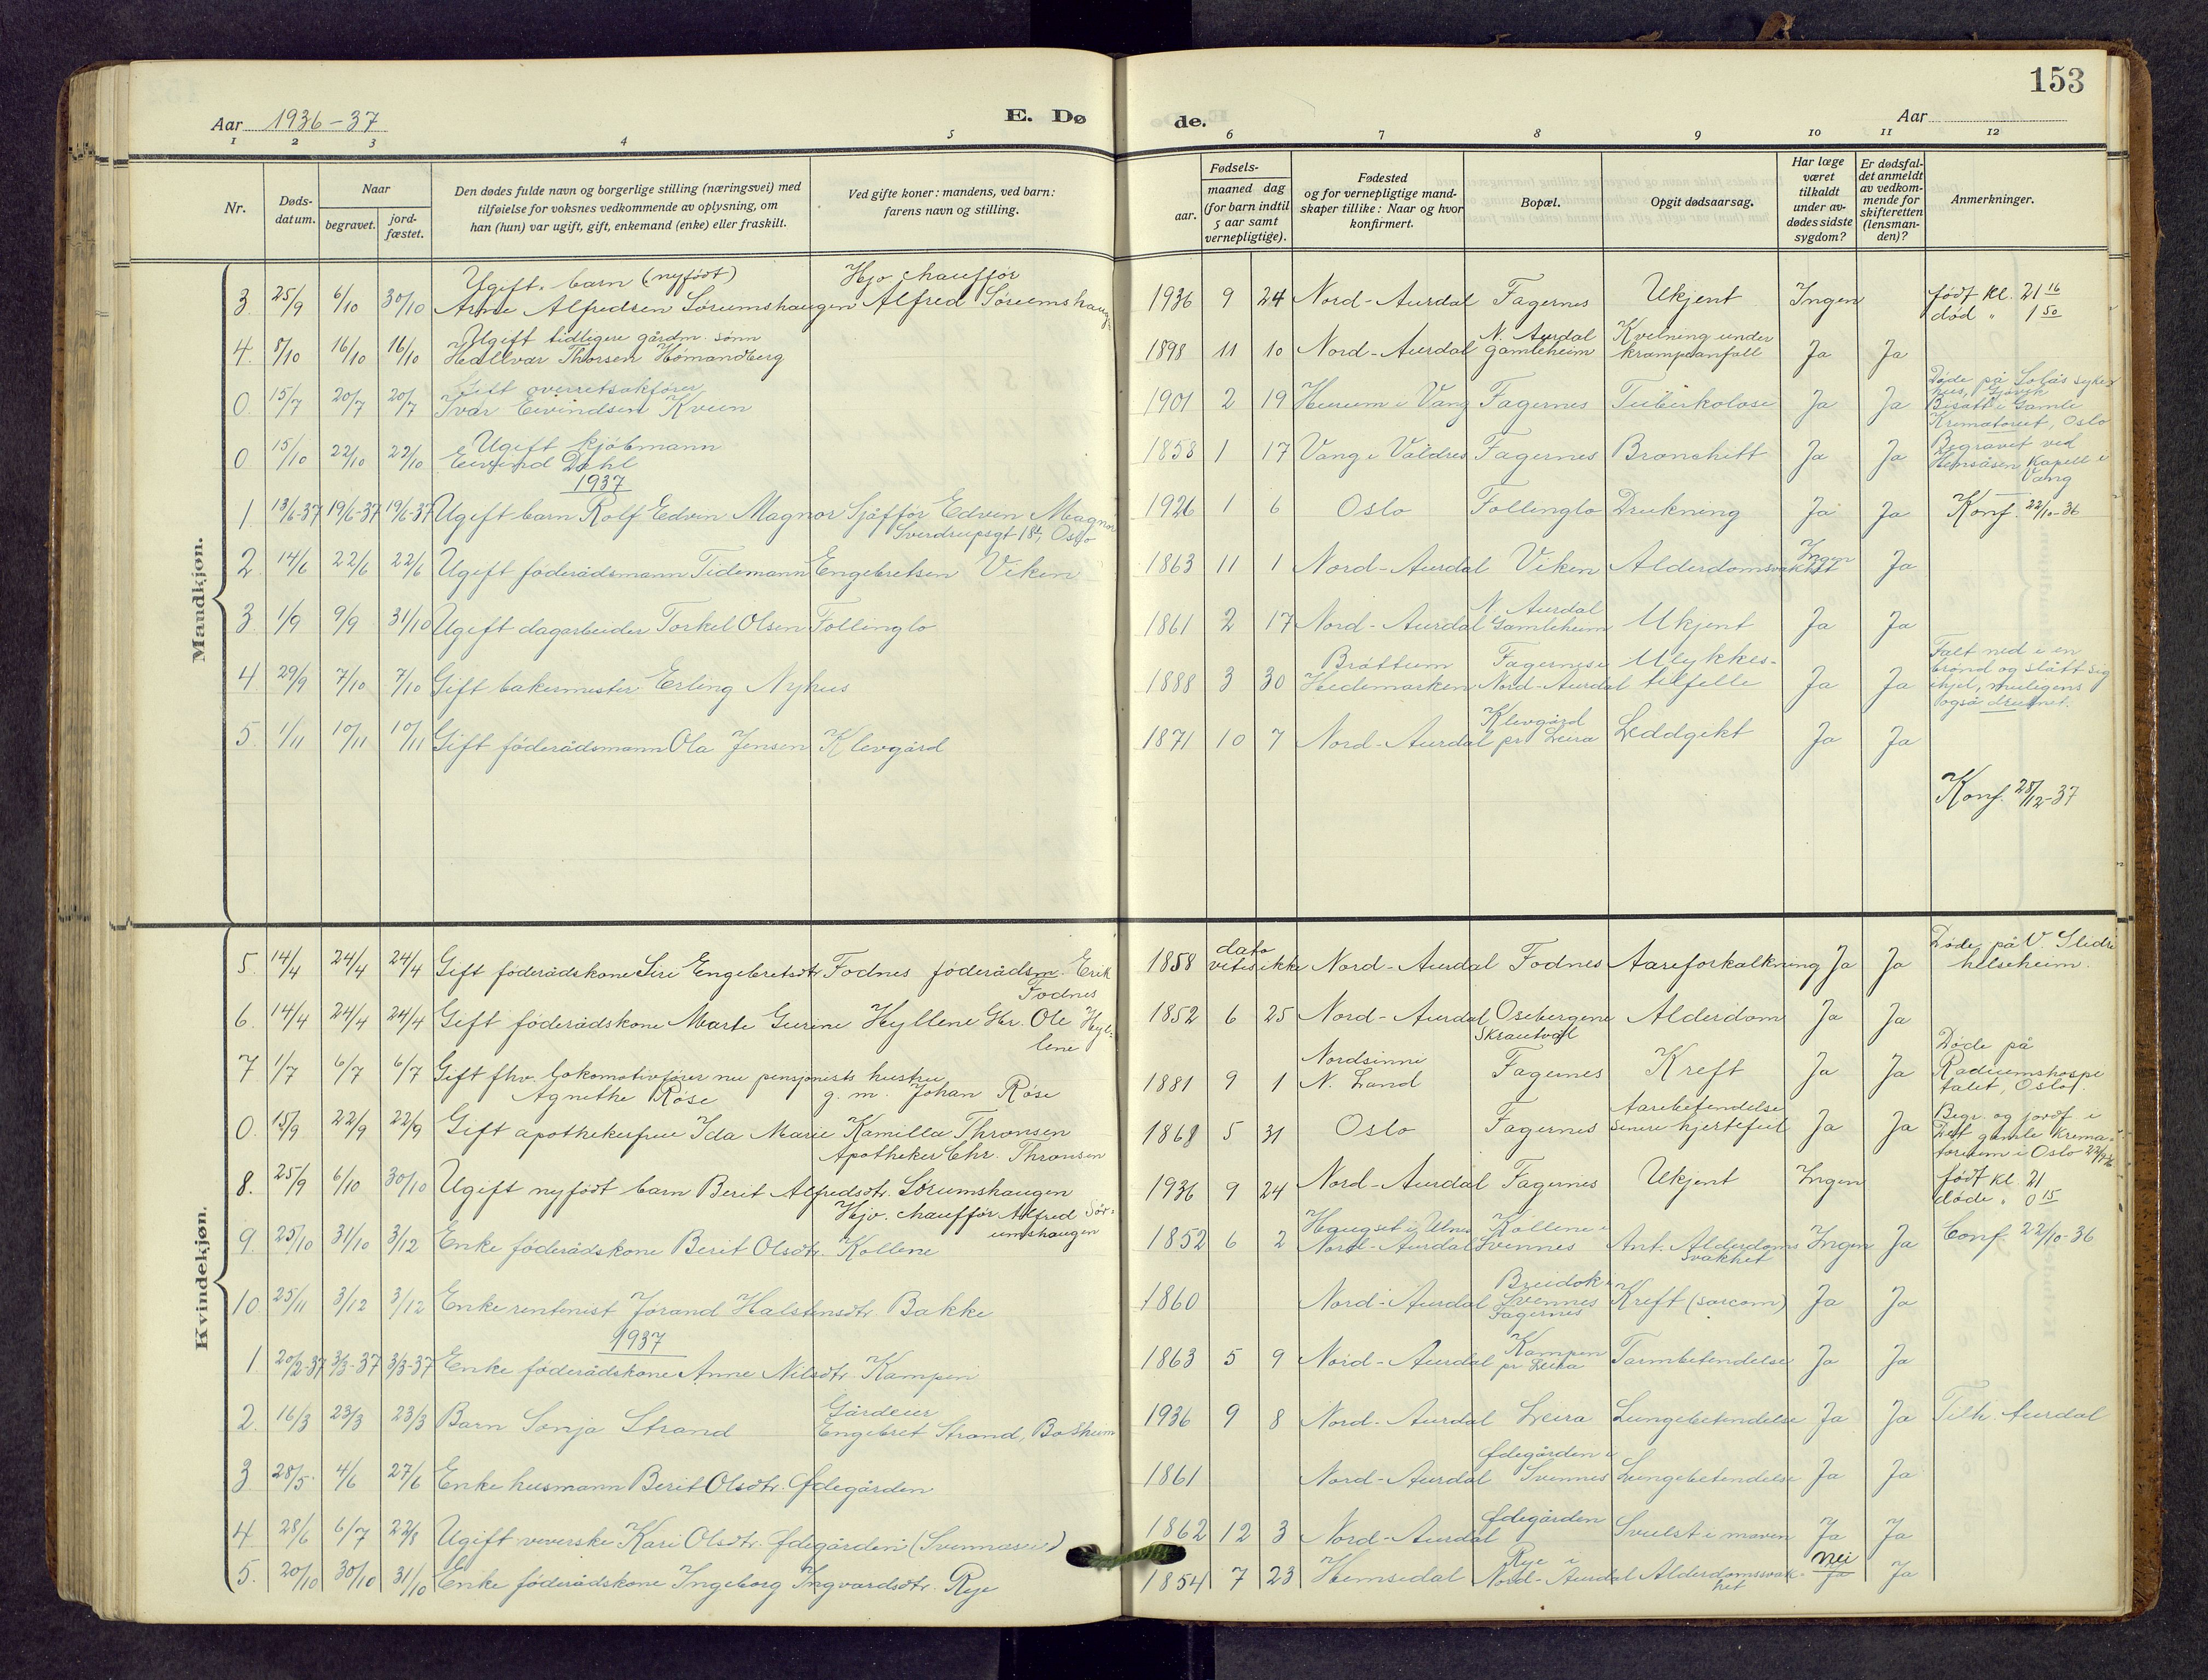 153
Aar 1936-37
E. Dø
de.
Aar
1 2 3 4 5 6 7 8 9 10 11 12
Nr.
Døds-
datum.
Naar
begravet.
jord-
fæstet.
Den dødes fulde navn og borgerlige stilling (næringsvei) med
tilføielse for voksnes vedkommende av oplysning, om
han (hun) var ugift, gift, enkemand (enke) eller fraskilt.
Ved gifte koner: mandens, ved barn:
farens navn og stilling.
Fødsels-
aar.
maaned dag
(for barn indtil
5 aar samt
vernepligtige).
Fødested
og for vernepligtige mand-
skaper tillike: Naar og hvor
konfirmert.
Bopæl.
Opgit dødsaarsag.
Har læge
været
tilkaldt
under av-
dødes sidste
sygdom?
Er dødsfal-
det anmeldt
av vedkom-
mende for
skifteretten
(lensman-
den)?
Anmerkninger.
Mandkjøn.
Ugift. barn (nyfødt) Hjv. chauffør
3. 25/9 6/10 30/10 Arne Alfredsen Sørumshaugen Alfred Sørumshaugen 1936 9 24 Nord-Aurdal Fagernes Ukjent Ingen født kl. 21 16
død " 1 50
Ugift tidligere gårdm. sønn N. Aurdal Kvelning under
4. 8/10 16/10 16/10 Hallvar Thorsen Hømandberg 1898 11 10 Nord-Aurdal Gamleheim krampeanfall Ja Ja
Gift overretsakfører Døde på Solås syke-
hus, Gjøvik
0. 15/7 20/7 20/7 Ivar Eivindsen Kvien 1901 2 19 Hurum i Vang Fagernes Tuberkolose Ja Ja Bisatt i Gamle
Krematoriet, Oslo
Ugift kjøbmann Begravet ved
0 15/10 22/10 22/10 Eivind Dahl 1858 1 17 Vang i Valdres Fagernes Bronchitt Ja Ja Hønsåsen Kapell i
Vang
1937
1 13/6-37 19/6-37 19/6-37 Ugift barn Rolf Edvin Magnor Sjåffør Edvin Magnor 1926 1 6 Oslo Follinglo Drukning Ja Ja Konf. 22/10-36
Sverdrupsgt 18, Oslo
2 14/6 22/6 22/6 Ugift føderådsmann Tidemann Engebretsen Viken 1863 11 1 Nord-Aurdal Viken Alderdomsvakhet Ingen Ja
N. Aurdal
3 1/9 9/9 31/10 Ugift dagarbeider Torkel Olsen Follinglo 1861 2 17 Nord-Aurdal Gamleheim Ukjent Ja Ja
Brøttum Fagernes i Ulykkes- Falt ned i en
brønd og slått sig
4 29/9 7/10 7/10 Gift bakermester Erling Nyhus 1888 3 30 Hedemarken Nord-Aurdal tilfelle Ja Ja ihjel, muligens
også druknet.
Klevgård
5. 1/11 10/11 10/11 Gift føderådsmann Ola Jensen Klevgård 1871 10 7 Nord-Aurdal pr Leira Leddgikt Ja Ja
Konf. 28/12-37
Kvindekjøn.
dato Døde på V. Slidre
5. 14/4 24/4 24/4 Gift føderådskone Siri Engebretsdtr. Fodnes føderådsm. Erik 1858 vites ikke Nord-Aurdal Fodnes Aareforkalkning Ja Ja helseheim.
Fodnes
6. 14/4 24/4 24/4 Gift føderådskone Marte Gurine Hyllene Hr. Ole Hyl- 1852 6 25 Nord-Aurdal Osebergene Alderdom Ja Ja
lene Skrautvål
Nordsinne Døde på
7 1/7 6/7 6/7 Gift fhv. lokomotivfører nu pensjonists hustru 1881 9 1 N. Land Fagernes Kreft Ja Ja Radiumshospi
Agnethe Røse g. m. Johan Røse talet, Oslo.
Aarebetendelse Begr. og jordf. i
0. 15/9 22/9 22/9 Gift apothekerfrue Ida Marie Kamilla Thronsen 1868 5 31 Oslo Fagernes senere hjertefeil Ja Ja Det gamle Krema-
Apotheker Chr. Thronsen torium i Oslo 22/9-36
8. 25/9 6/10 30/10 Ugift nyfødt barn Berit Alfredsdtr. Sørumshaugen 1936 9 24 Nord-Aurdal Fagernes Ukjent Ingen født kl. 21
døde " 0 15
Hjv. chauffør Alfred Sør-
umshaugen
Haugset i Ulnes Kollene i
9. 25/10 31/10 3/12 Enke føderådskone Berit Olsdtr. Kollene 1852 6 2 Nord-Aurdal Svennes Ant. Alderdoms Ingen Ja Conf. 22/10-36
svakhet
Breidok
10. 25/11 3/12 3/12 Enke rentenist Jørand Halstensdtr. Bakke 1860 Nord-Aurdal Svennes Kreft (sarcom) Ja Ja
Fagernes
1937
Kampen
1 20/2-37 3/3-37 3/3-37 Enke føderådskone Anne Nilsdtr. Kampen 1863 5 9 Nord-Aurdal pr Leira Tarmbetendelse Ja Ja
Gårdeier
2. 16/3 23/3 23/3 Barn Sonja Strand Engebret Strand, Basheim 1936 9 8 Nord-Aurdal Leira Lungebetendelse Ja Ja Tilh. Aurdal
Ødegården i
3 28/5. 4/6 27/6 Enke husmann Berit Olsdtr. Ødegården 1861 Nord-Aurdal Svennes Lungebetendelse Ja Ja
Ødegården
4 28/6 6/7 22/8 Ugift veverske Kari Olsdtr. Ødegården (Svennes) 1862 12 3 Nord-Aurdal Svulst i maven Ja Ja
Rye i nei
5. 20/10 30/10 31/10 Enke føderådskone Ingeborg Ingvardsdtr. Rye 1854 7 23 Hemsedal Nord-Aurdal Alderdomssvak- Ja Ja
het